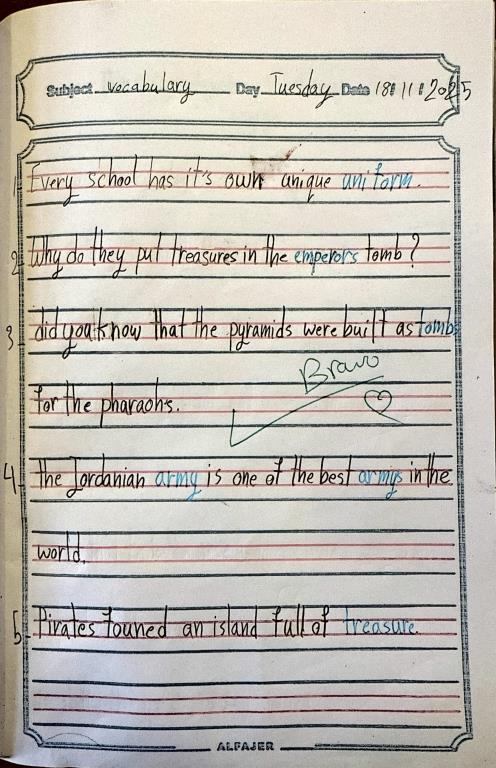 Subject vocabulary Day Tuesday Date 18 11 2025
1 Every school has it's own unique uniform.
2 Why do they put treasures in the emperors tomb?
3 did you know that the pyramids were built as tombs
Bravo
for the pharaohs.
4 the Jordanian army is one of the best armys in the
world.
5 Pirates founed an island full of treasure.
ALFAJER